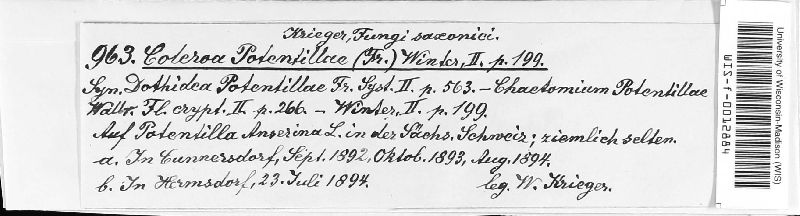 Krieger, Fungi saxonici.
963. Coleroa Potentillae (Fr.) Winter, II. p. 199.
Syn. Dothidea Potentillae Fr. Syst. II. p. 563. – Chaetomium Potentillae
Wallr. Fl. crypt. II. p. 266. – Winter, II. p. 199.
Auf Potentilla Anserina L. in der Sächs. Schweiz; ziemlich selten.
a. In Cunnersdorf, Sept. 1892, Oktob. 1893, Aug. 1894.
b. In Hermsdorf, 23. Juli 1894. leg. W. Krieger.
University of Wisconsin-Madison (WIS)
WIS-f-0012884